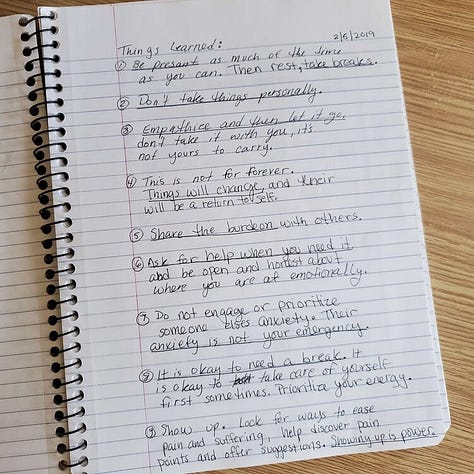 Things Learned:
2/5/2019
① Be present as much of the time
as you can. Then rest, take breaks.
② Don't take things personally.
③ Empathize and then let it go,
don't take it with you, it's
not yours to carry.
④ This is not for forever.
Things will change, and their
will be a return to self.
⑤ Share the burden with others.
⑥ Ask for help when you need it
and be open and honest about
where you are at emotionally.
⑦ Do not engage or prioritize
someone elses anxiety. Their
anxiety is not your emergency.
⑧ It is okay to need a break. It
is okay to take care of yourself
first sometimes. Prioritize your energy.
⑨ Show up. Look for ways to ease
pain and suffering, help discover pain
points and offer suggestions. Showing up is power.